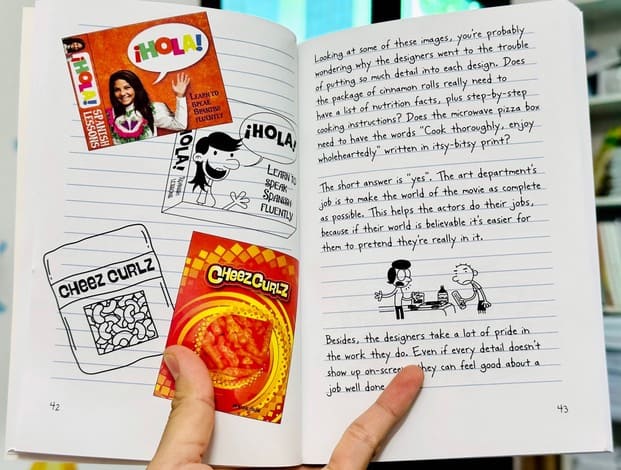 ¡HOLA!
¡HOLA!
SPANISH
LESSONS
LEARN TO
SPEAK
SPANISH
FLUENTLY
¡HOLA!
¡HOLA!
LEARN TO
SPEAK
SPANISH
FLUENTLY
CHEEZ CURLZ
CHEEZ CURLZ
42
Looking at some of these images, you're probably
wondering why the designers went to the trouble
of putting so much detail into each design. Does
the package of cinnamon rolls really need to
have a list of nutrition facts, plus step-by-step
cooking instructions? Does the microwave pizza box
need to have the words "Cook thoroughly, enjoy
wholeheartedly" written in itsy-bitsy print?
The short answer is "yes". The art department's
job is to make the world of the movie as complete
as possible. This helps the actors do their jobs,
because if their world is believable it's easier for
them to pretend they're really in it.
Besides, the designers take a lot of pride in
the work they do. Even if every detail doesn't
show up on-screen they can feel good about a
job well done
43